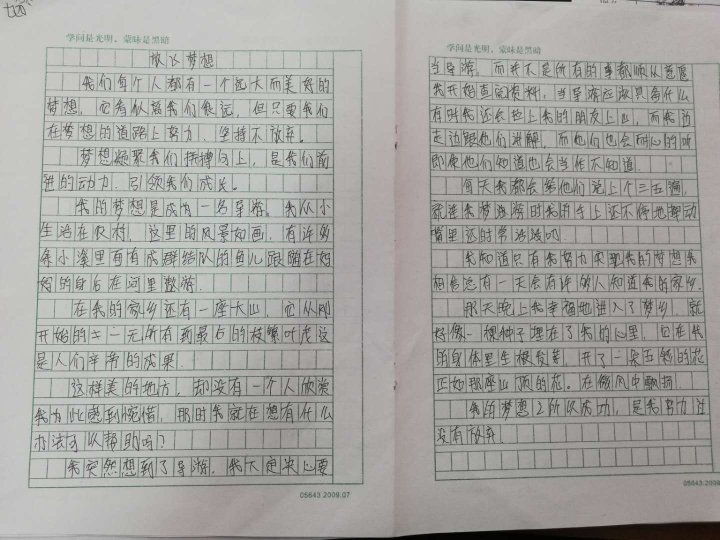 学问是光明，蒙昧是黑暗
放飞梦想
我们每个人都有一个远大而美好的
梦想，它看似离我们很远，但只要我们
在梦想的道路上努力、坚持不放弃。
梦想凝聚我们拼搏向上，是我们前
进的动力，引领我们成长。
我的梦想是成为一名导游。我从小
生活在农村，这里的风景如画，有许多
条小溪里面有成群结队的鱼儿跟随在妈
妈的身后在河里遨游。
在我的家乡还有一座大山，它从刚
开始的土一无所有到最后的枝繁叶茂这
是人们辛勤的成果。
这样美的地方，却没有一个人欣赏
我为此感到惋惜，那时我就在想有什么
办法可以帮助吗？
我突然想到了导游，我下定决心要
05643 2009.07
学问是光明，蒙昧是黑暗
当导游。而并不是所有的事都顺从意愿
我开始查阅资料，当导游应该具备什么
有时我还会拉上我的朋友上山，而我边
走边跟他们讲解，而他们也会耐心的听
即使他们知道也会当作不知道。
每天我都会给他们说上个三五遍，
就连我梦游时我的手上还不停地舞动
嘴里还时常说
我知道只有我努力实现我的梦想我
相信总有一天会有许多人知道我的家乡。
那天晚上我幸福地进入了梦乡，就
好像一棵种子埋在了我的心里，它在我
的身体里生根发芽，开了一朵五颜的花
正如那座山顶的花。在微风中飘扬。
我的梦想之所以成功，是我努力过
没有放弃。
05643 2009